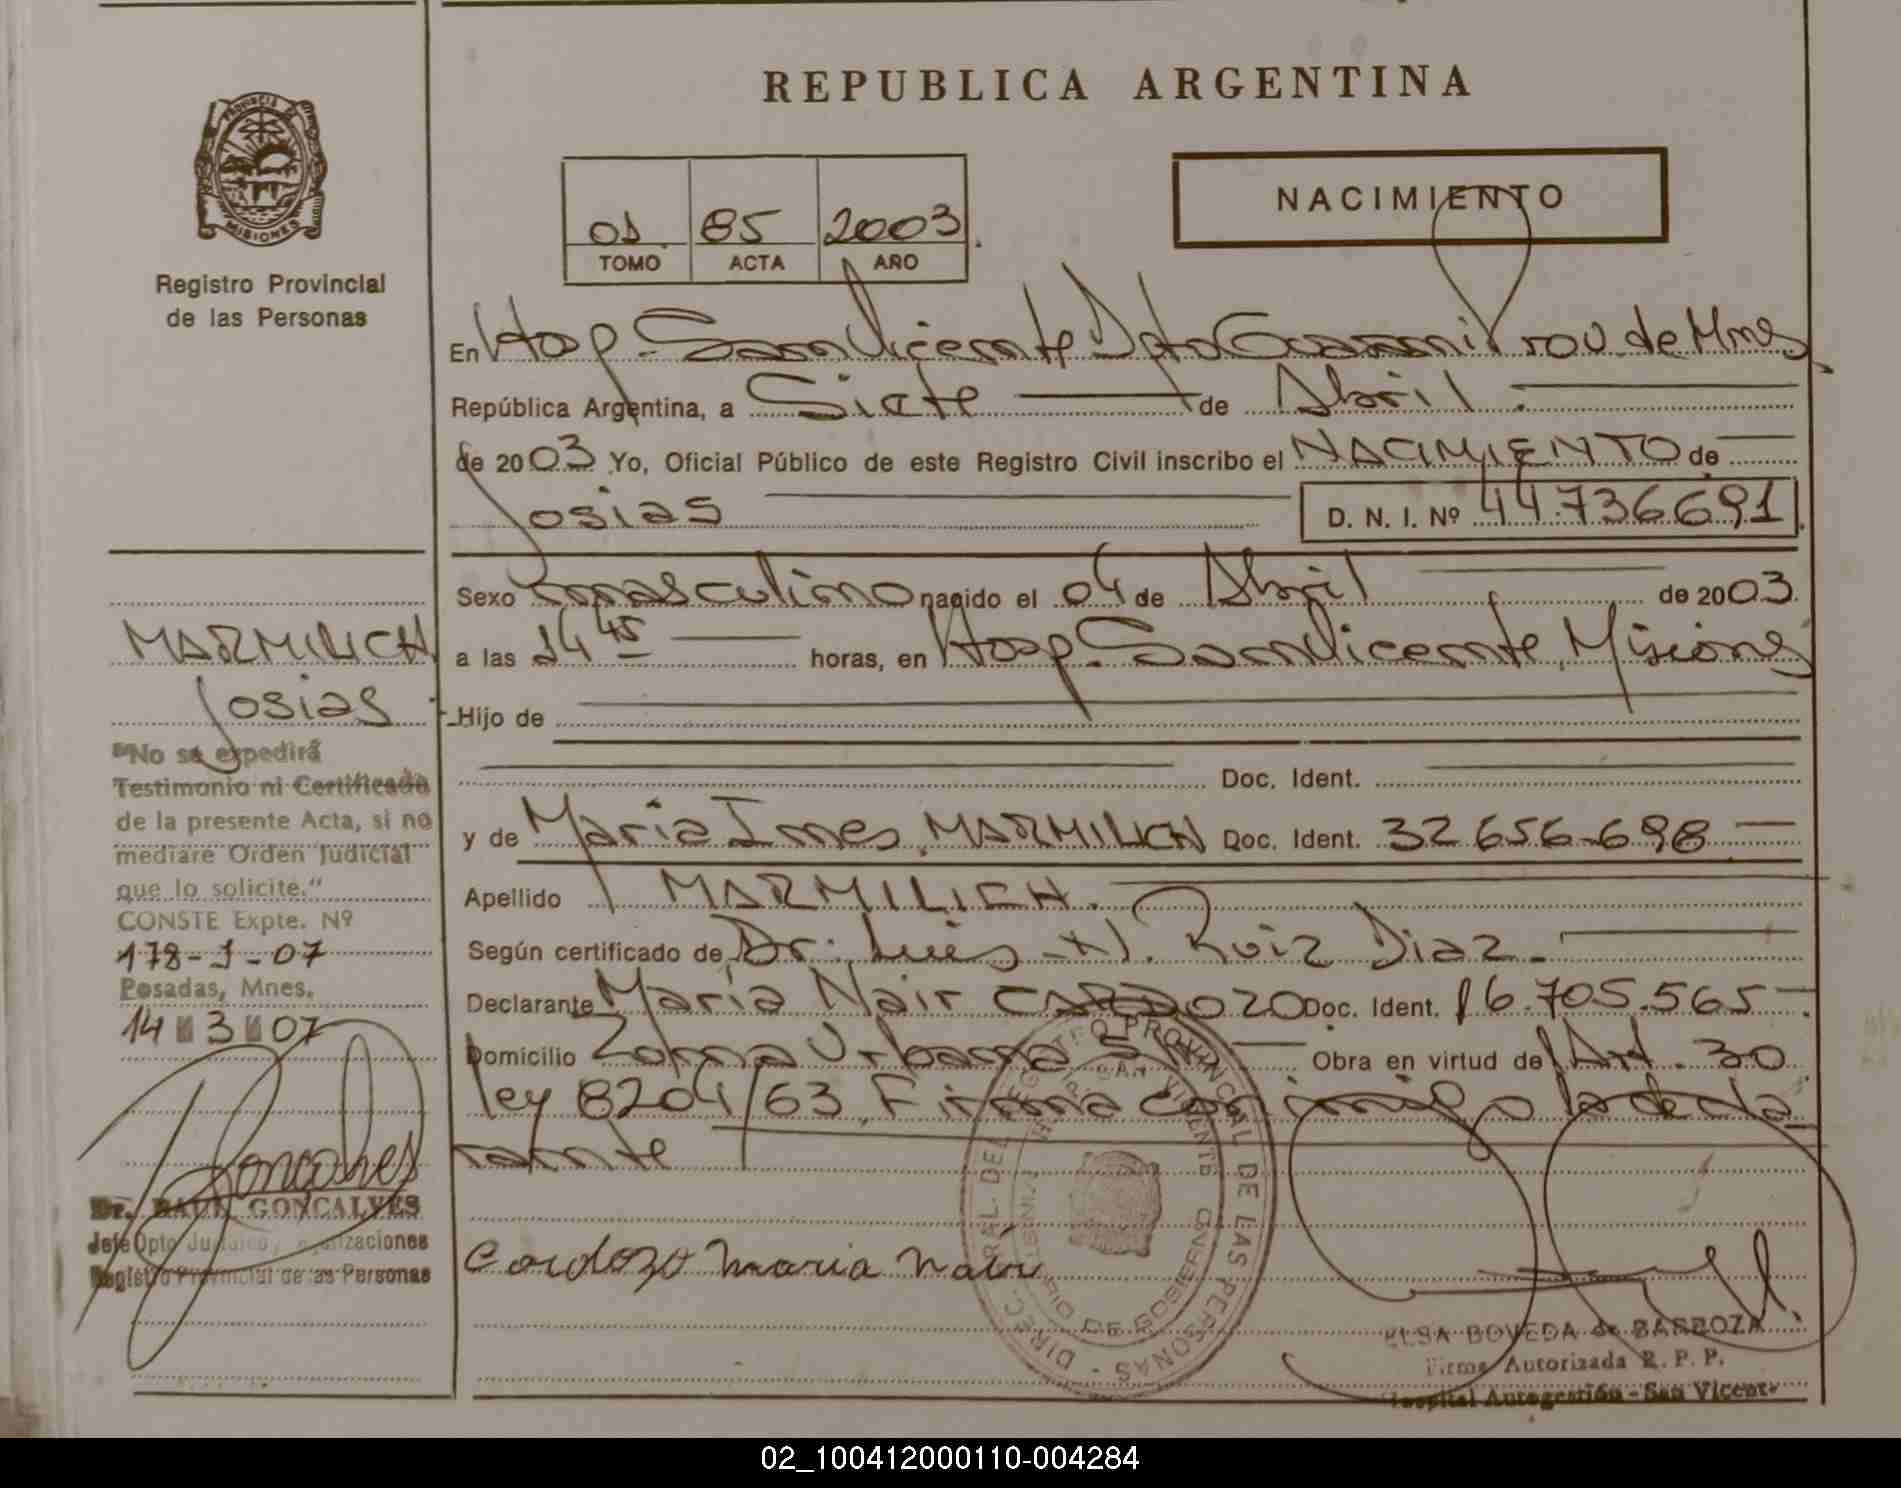 REPUBLICA ARGENTINA
PROVINCIA DE
MISIONES
Registro Provincial
de las Personas
NACIMIENTO
01 85 2003
TOMO ACTA AÑO
En Hosp. San Vicente Dpto Guarani Prov. de Mnes
República Argentina, a Siete de Abril
de 2003 Yo, Oficial Público de este Registro Civil inscribo el NACIMIENTO de
Josias D. N. I. Nº 44.736691
Sexo masculino nacido el 04 de Abril de 2003
a las 14 45 horas, en Hosp. San Vicente, Misiones
Hijo de
Doc. Ident.
y de Maria Ines MARMILICH Doc. Ident. 32.656.698
Apellido MARMILICH.
Según certificado de Dr. Luis Ruiz Diaz
Declarante Maria Nair CARDOZO Doc. Ident. 16.705.565
Domicilio Zona Urbana S.V. Obra en virtud de Art. 30
ley 8204/63. Firma conmigo la decla
rante
Cardozo Maria Nair
MARMILICH
Josias
"No se expedirá
Testimonio ni Certificado
de la presente Acta, si no
mediare Orden Judicial
que lo solicite."
CONSTE Expte. Nº
178-J-07
Posadas, Mnes.
14 3 07
Goncalves
Dr. RAUL GONCALVES
Jefe Dpto
Registro Provincial de las Personas
DIREC. GRAL. DEL REGISTRO PROVINCIAL DE LAS PERSONAS
SAN VICENTE
MINISTERIO DE GOBIERNO
ELSA BOVEDA de BARBOZA
Firma Autorizada R. P. P.
Hospital Autogestión - San Vicente
02_100412000110-004284